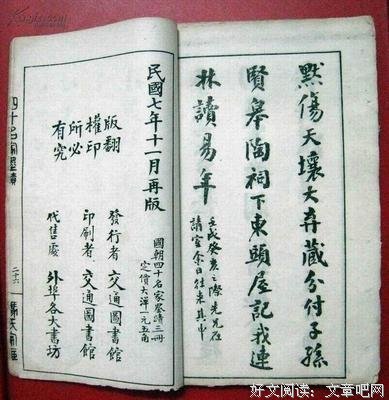 黙傷天壤大弃藏分付子孫
賢皋陶祠下東頭屋記我連
林讀易年
壬戌癸亥之際先兄在
請室余日往來其中
民國七年十一月再版
國朝四十名家墨蹟三冊
定價大洋一元五角
版權所有
翻印必究
發行者 交通圖書館
印刷者 交通圖書館
代售處 外埠各大書坊
四十名家墨蹟
二十六
好文阅读:文章吧网